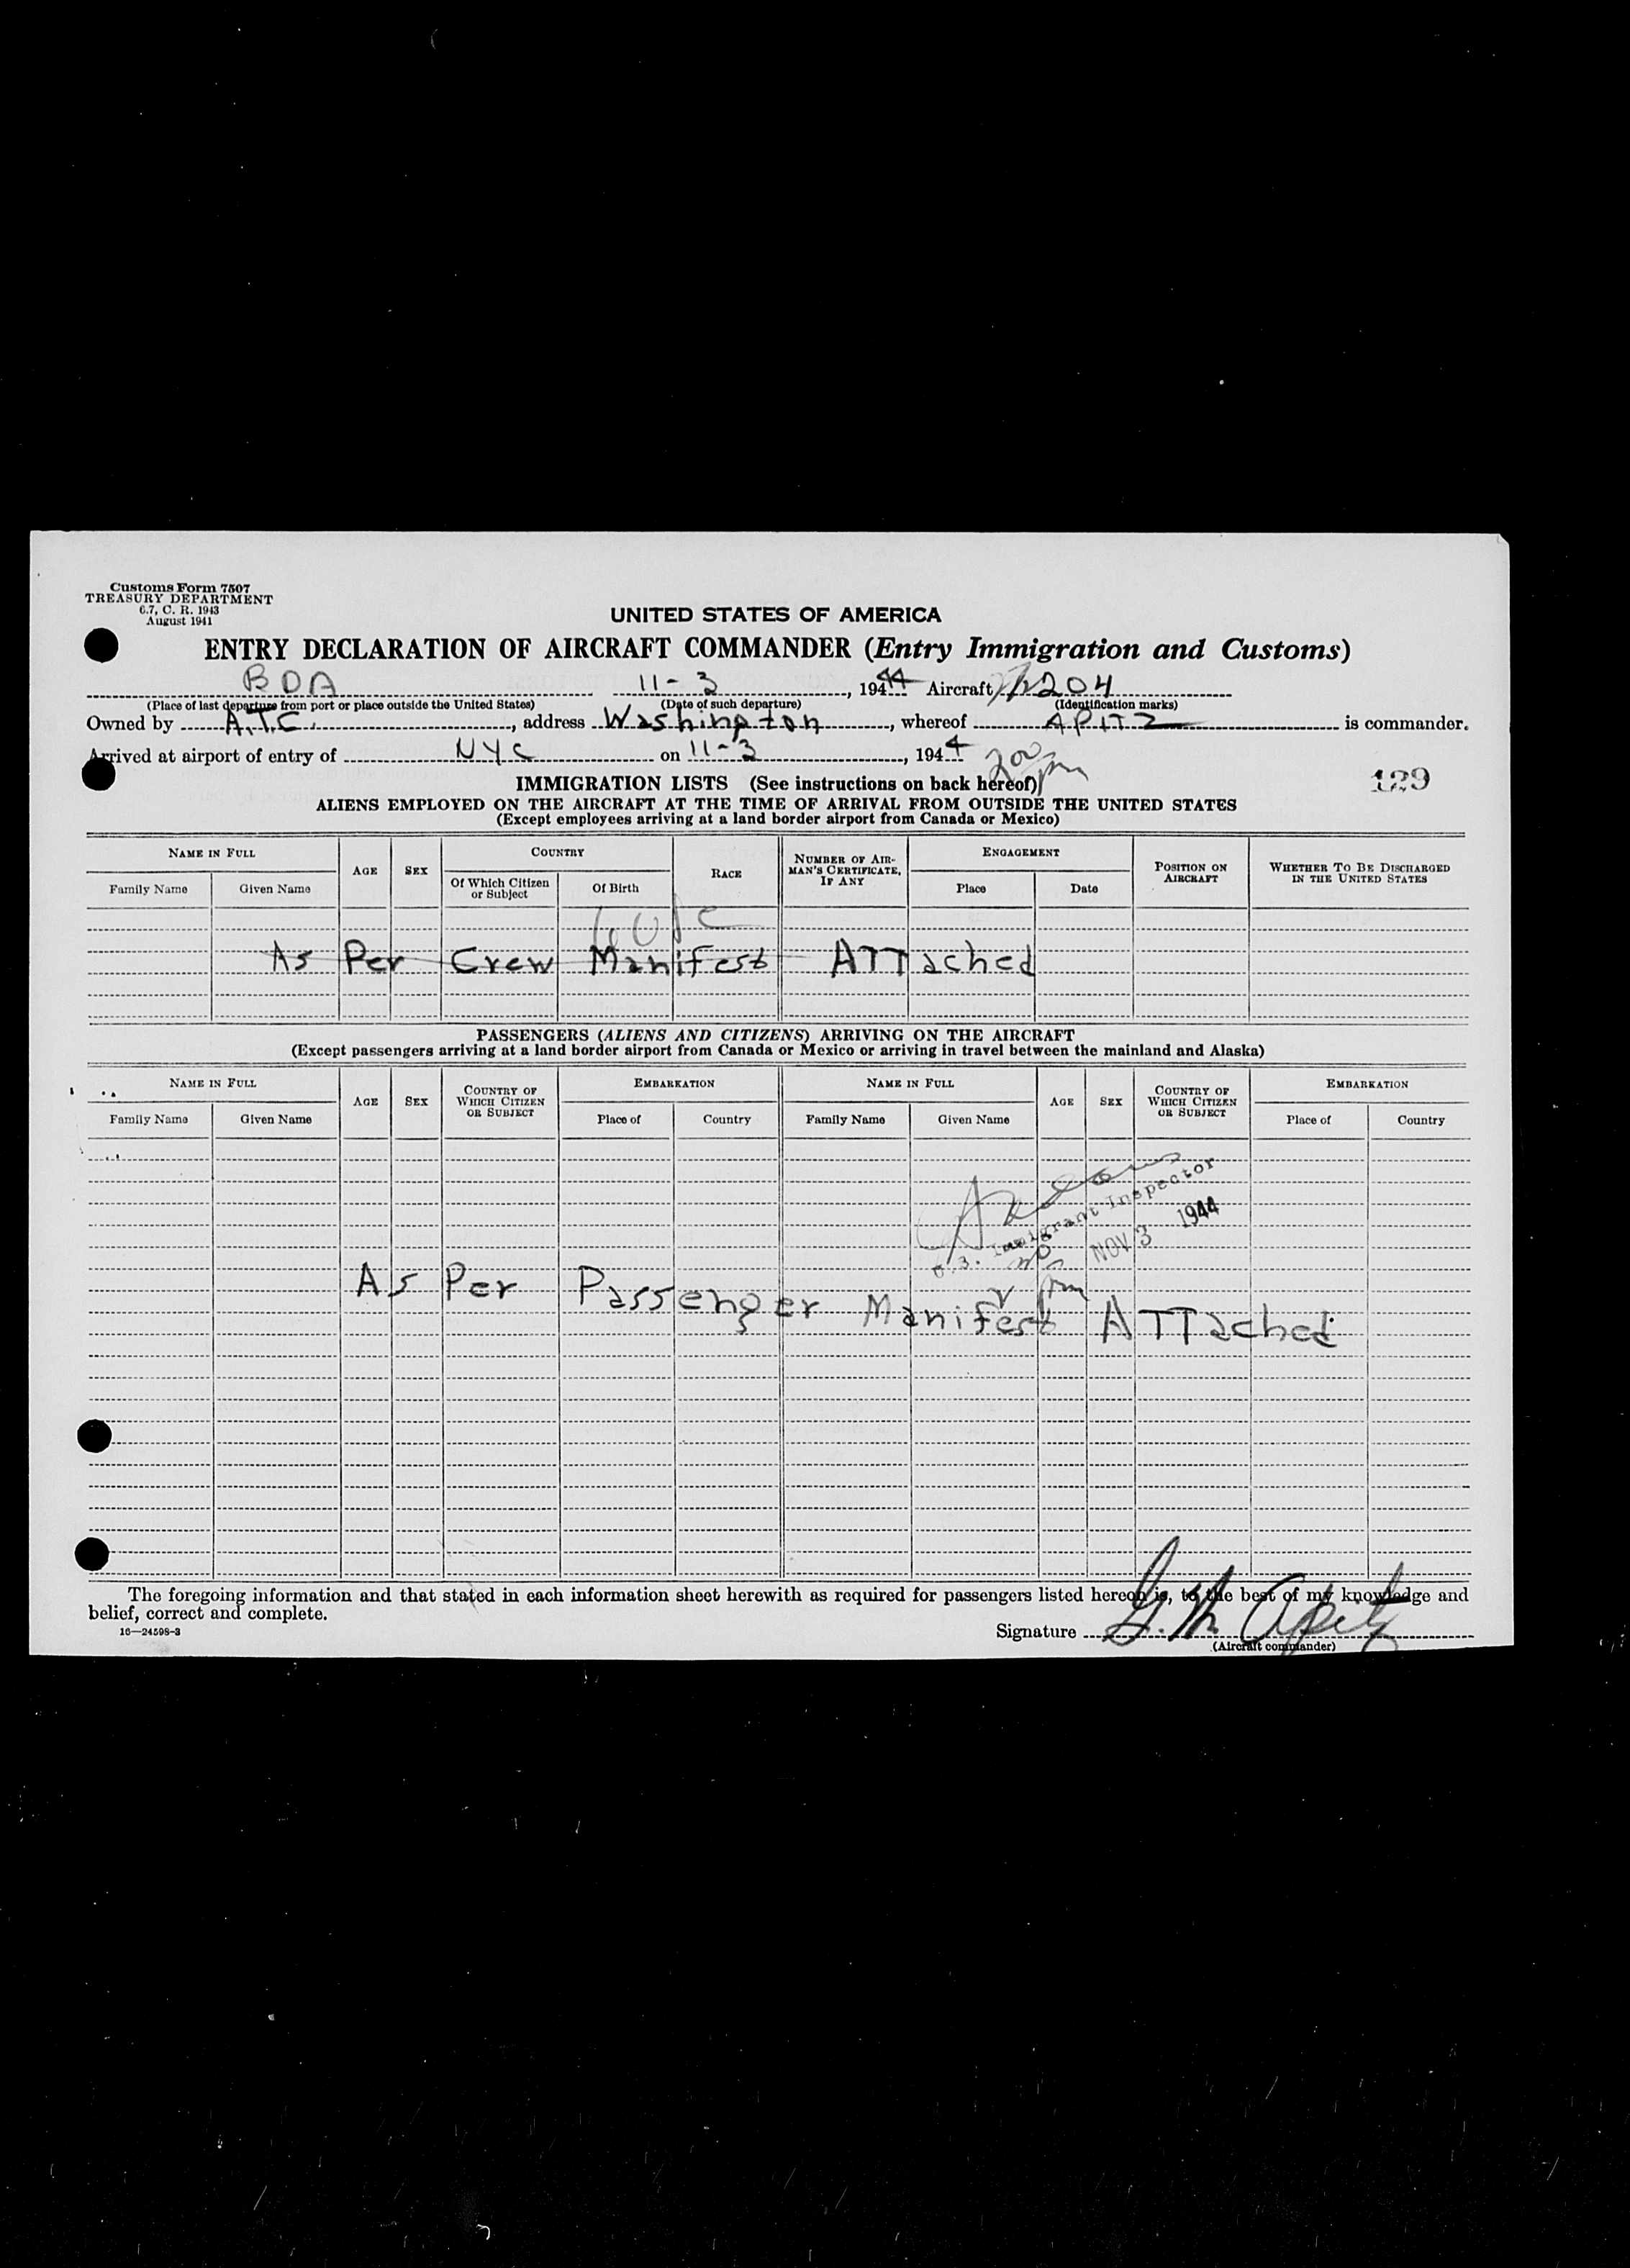 Customs Form 7507
TREASURY DEPARTMENT
6.7, C. R. 1943
August 1941
UNITED STATES OF AMERICA
ENTRY DECLARATION OF AIRCRAFT COMMANDER (Entry Immigration and Customs)
BDA 11-3, 1944 Aircraft 204
(Place of last departure from port or place outside the United States) (Date of such departure) (Identification marks)
Owned by A.T.C., address Washington, whereof APITZ is commander.
Arrived at airport of entry of NYC on 11-3, 1944
200 pm
129
IMMIGRATION LISTS (See instructions on back hereof)
ALIENS EMPLOYED ON THE AIRCRAFT AT THE TIME OF ARRIVAL FROM OUTSIDE THE UNITED STATES
(Except employees arriving at a land border airport from Canada or Mexico)
NAME IN FULL AGE SEX COUNTRY RACE NUMBER OF AIRMAN'S CERTIFICATE, IF ANY ENGAGEMENT POSITION ON AIRCRAFT WHETHER TO BE DISCHARGED IN THE UNITED STATES
Family Name Given Name Of Which Citizen or Subject Of Birth Place Date
As Per Crew Manifest ATTached
PASSENGERS (ALIENS AND CITIZENS) ARRIVING ON THE AIRCRAFT
(Except passengers arriving at a land border airport from Canada or Mexico or arriving in travel between the mainland and Alaska)
NAME IN FULL AGE SEX COUNTRY OF WHICH CITIZEN OR SUBJECT EMBARKATION NAME IN FULL AGE SEX COUNTRY OF WHICH CITIZEN OR SUBJECT EMBARKATION
Family Name Given Name Place of Country Family Name Given Name Place of Country
U.S. Immigrant Inspector
NOV 3 1944
As Per Passenger Manifest ATTached
The foregoing information and that stated in each information sheet herewith as required for passengers listed hereon is, to the best of my knowledge and
belief, correct and complete.
16—24598-3
Signature G. M. Apitz
(Aircraft commander)